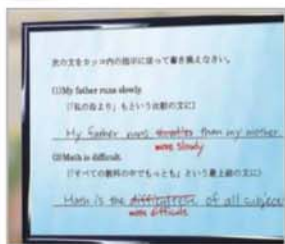 次の文をカッコ内の指示に従って書き換えなさい。
(1)My father runs slowly.
(「私の母より」もという比較の文に)
My father runs than my mother.
more slowly
(2)Math is difficult.
(「すべての教科の中でもっとも」という最上級の文に)
Math is the of all subjects
most difficult